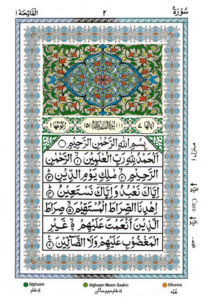 سُورَةُ ٢ اَلْفَاتِحَة ١
بِسْمِ اللّٰهِ الرَّحْمٰنِ الرَّحِيْمِ
اَلْحَمْدُ لِلّٰهِ رَبِّ الْعٰلَمِيْنَ الرَّحْمٰنِ
الرَّحِيْمِ مٰلِكِ يَوْمِ الدِّيْنِ
اِيَّاكَ نَعْبُدُ وَاِيَّاكَ نَسْتَعِيْنُ
اِهْدِنَا الصِّرَاطَ الْمُسْتَقِيْمَ صِرَاطَ
الَّذِيْنَ اَنْعَمْتَ عَلَيْهِمْ غَيْرِ
الْمَغْضُوْبِ عَلَيْهِمْ وَلَا الضَّآلِّيْنَ
Idghaam Idghaam Meem Saakin Ghunna